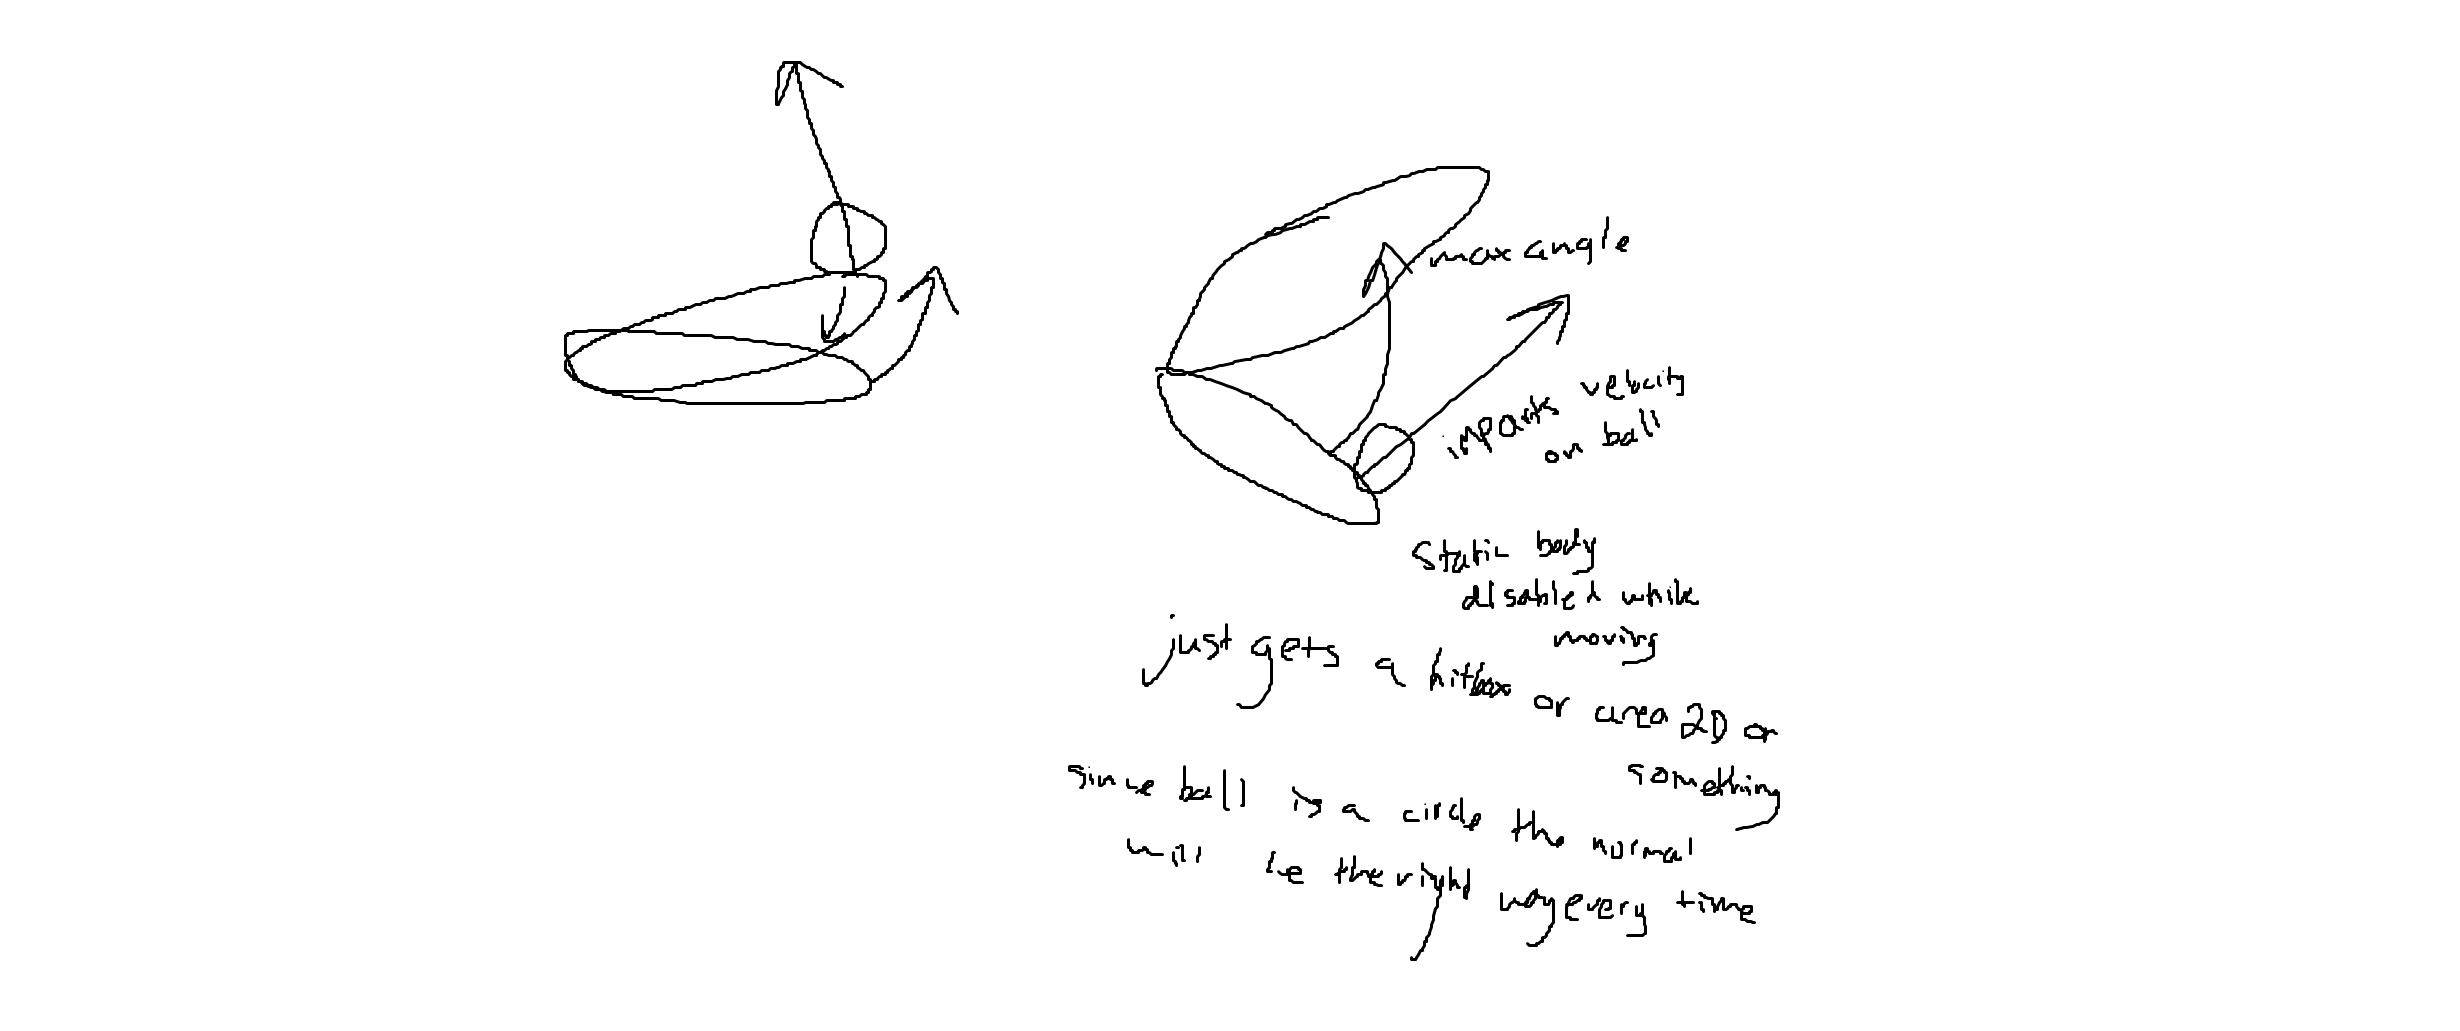 max angle
imparts velocity
on ball
static body
disabled while
moving
just gets a hitbox or area 2D or
something
since ball is a circle the normal
will be the right way every time